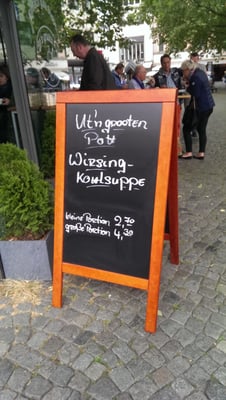 Ut'n grooten
Pott
Wirsing-
Kohlsuppe
kleine Portion 2,70
große Portion 4,30